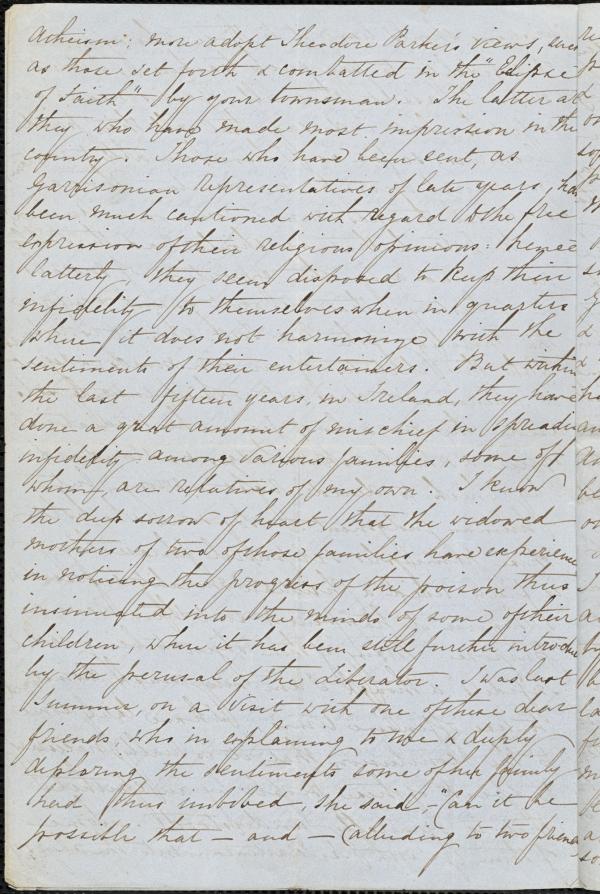 Atheism; more adopt Theodore Parker's views, even
as those set forth & combatted in the "Eclipse
of Faith" by your townsman. The latter are
they who have made most impression in the
country. Those who have been sent, as
Garrisonian representatives of late years, have
been much cautioned with regard to the free
expression of their religious opinions: hence
latterly, they seem disposed to keep their
infidelity to themselves when in quarters
where it does not harmonize with the
sentiments of their entertainers. But within
the last fifteen years, in Ireland, they have
done a great amount of mischief in spreading
infidelity among various families, some of
whom, are relatives of my own. I know
the deep sorrow of heart that the widowed
mothers of two of those families have experienced
in noticing the progress of the poison thus
insinuated into the minds of some of their
children, where it has been still further introduced
by the perusal of the Liberator. I was last
Summer, on a visit with one of these dear
friends, who in explaining to me & deeply
deploring the sentiments some of her family
had thus imbibed, she said,—"Can it be
possible that — and — (alluding to two friends